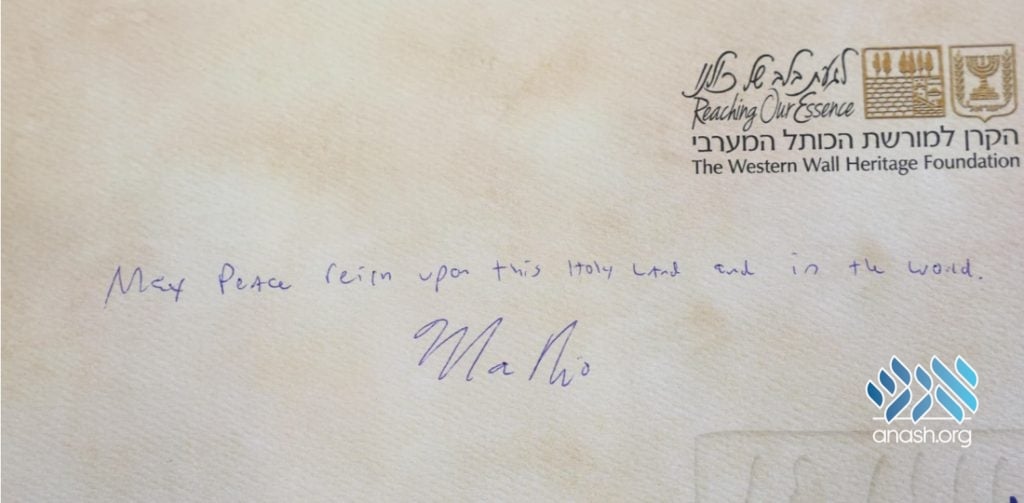 לגעת בלב של כולנו
Reaching Our Essence
הקרן למורשת הכותל המערבי
The Western Wall Heritage Foundation
May Peace reign upon this Holy Land and in the world.
אנש
anash.org